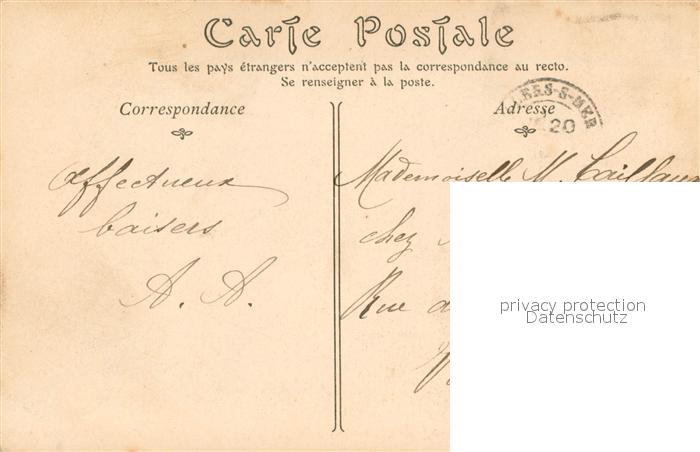 Carte Postale
Tous les pays étrangers n'acceptent pas la correspondance au recto.
Se renseigner à la poste.
Correspondance
Adresse
ERS-S-MER
20
Affectueux
baisers
A. A.
Mademoiselle M.
chez
Rue
privacy protection
Datenschutz